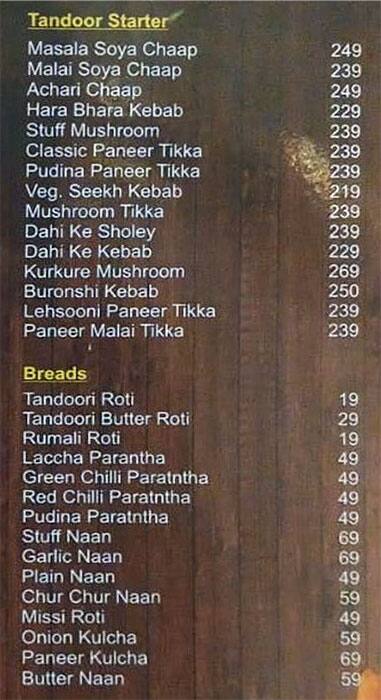 Tandoor Starter
Masala Soya Chaap 249
Malai Soya Chaap 239
Achari Chaap 249
Hara Bhara Kebab 229
Stuff Mushroom 239
Classic Paneer Tikka 239
Pudina Paneer Tikka 239
Veg. Seekh Kebab 219
Mushroom Tikka 239
Dahi Ke Sholey 239
Dahi Ke Kebab 229
Kurkure Mushroom 269
Buronshi Kebab 250
Lehsooni Paneer Tikka 239
Paneer Malai Tikka 239
Breads
Tandoori Roti 19
Tandoori Butter Roti 29
Rumali Roti 19
Laccha Parantha 49
Green Chilli Paratntha 49
Red Chilli Paratntha 49
Pudina Paratntha 49
Stuff Naan 69
Garlic Naan 69
Plain Naan 49
Chur Chur Naan 59
Missi Roti 49
Onion Kulcha 59
Paneer Kulcha 69
Butter Naan 59